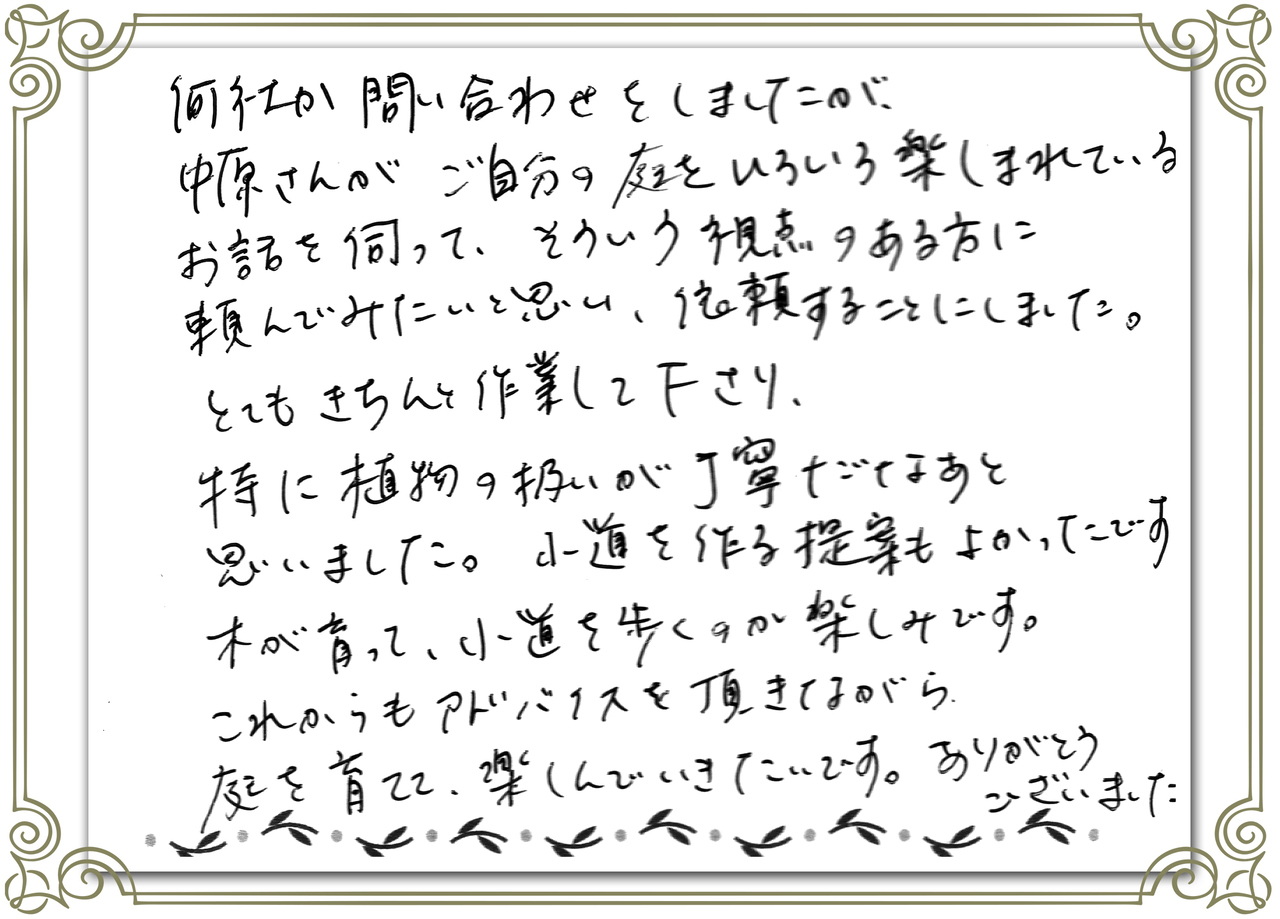 何社か問い合わせをしましたが、
中原さんが ご自分の庭をいろいろ楽しまれている
お話を伺って、そういう視点のある方に
頼んでみたいと思い、依頼することにしました。
とてもきちんと作業して下さり、
特に植物の扱いが丁寧だなあと
思いました。小道を作る提案もよかったです
木が育って、小道を歩くのが楽しみです。
これからもアドバイスを頂きながら、
庭を育てて、楽しんでいきたいです。ありがとう
ございました